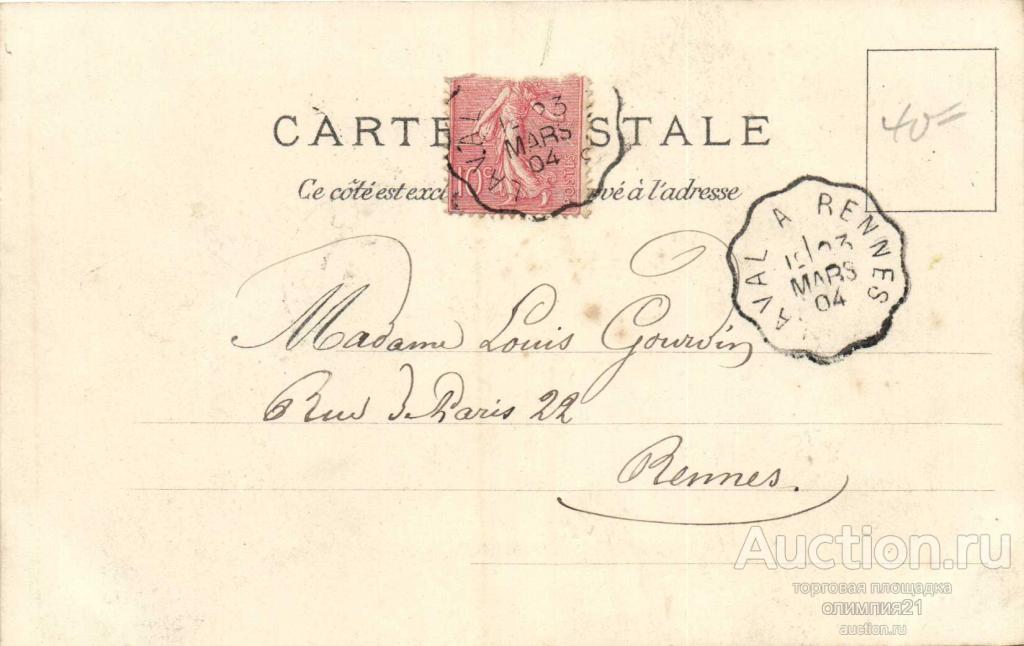 CARTE POSTALE
Ce côté est exc vé à l'adresse
10c
LAVAL
23
MARS
04
LAVAL A RENNES
19 23
MARS
04
40=
Madame Louis Gourdin
Rue de Paris 22
Rennes.
Auction.ru
торговая площадка
олимпия21
auction.ru